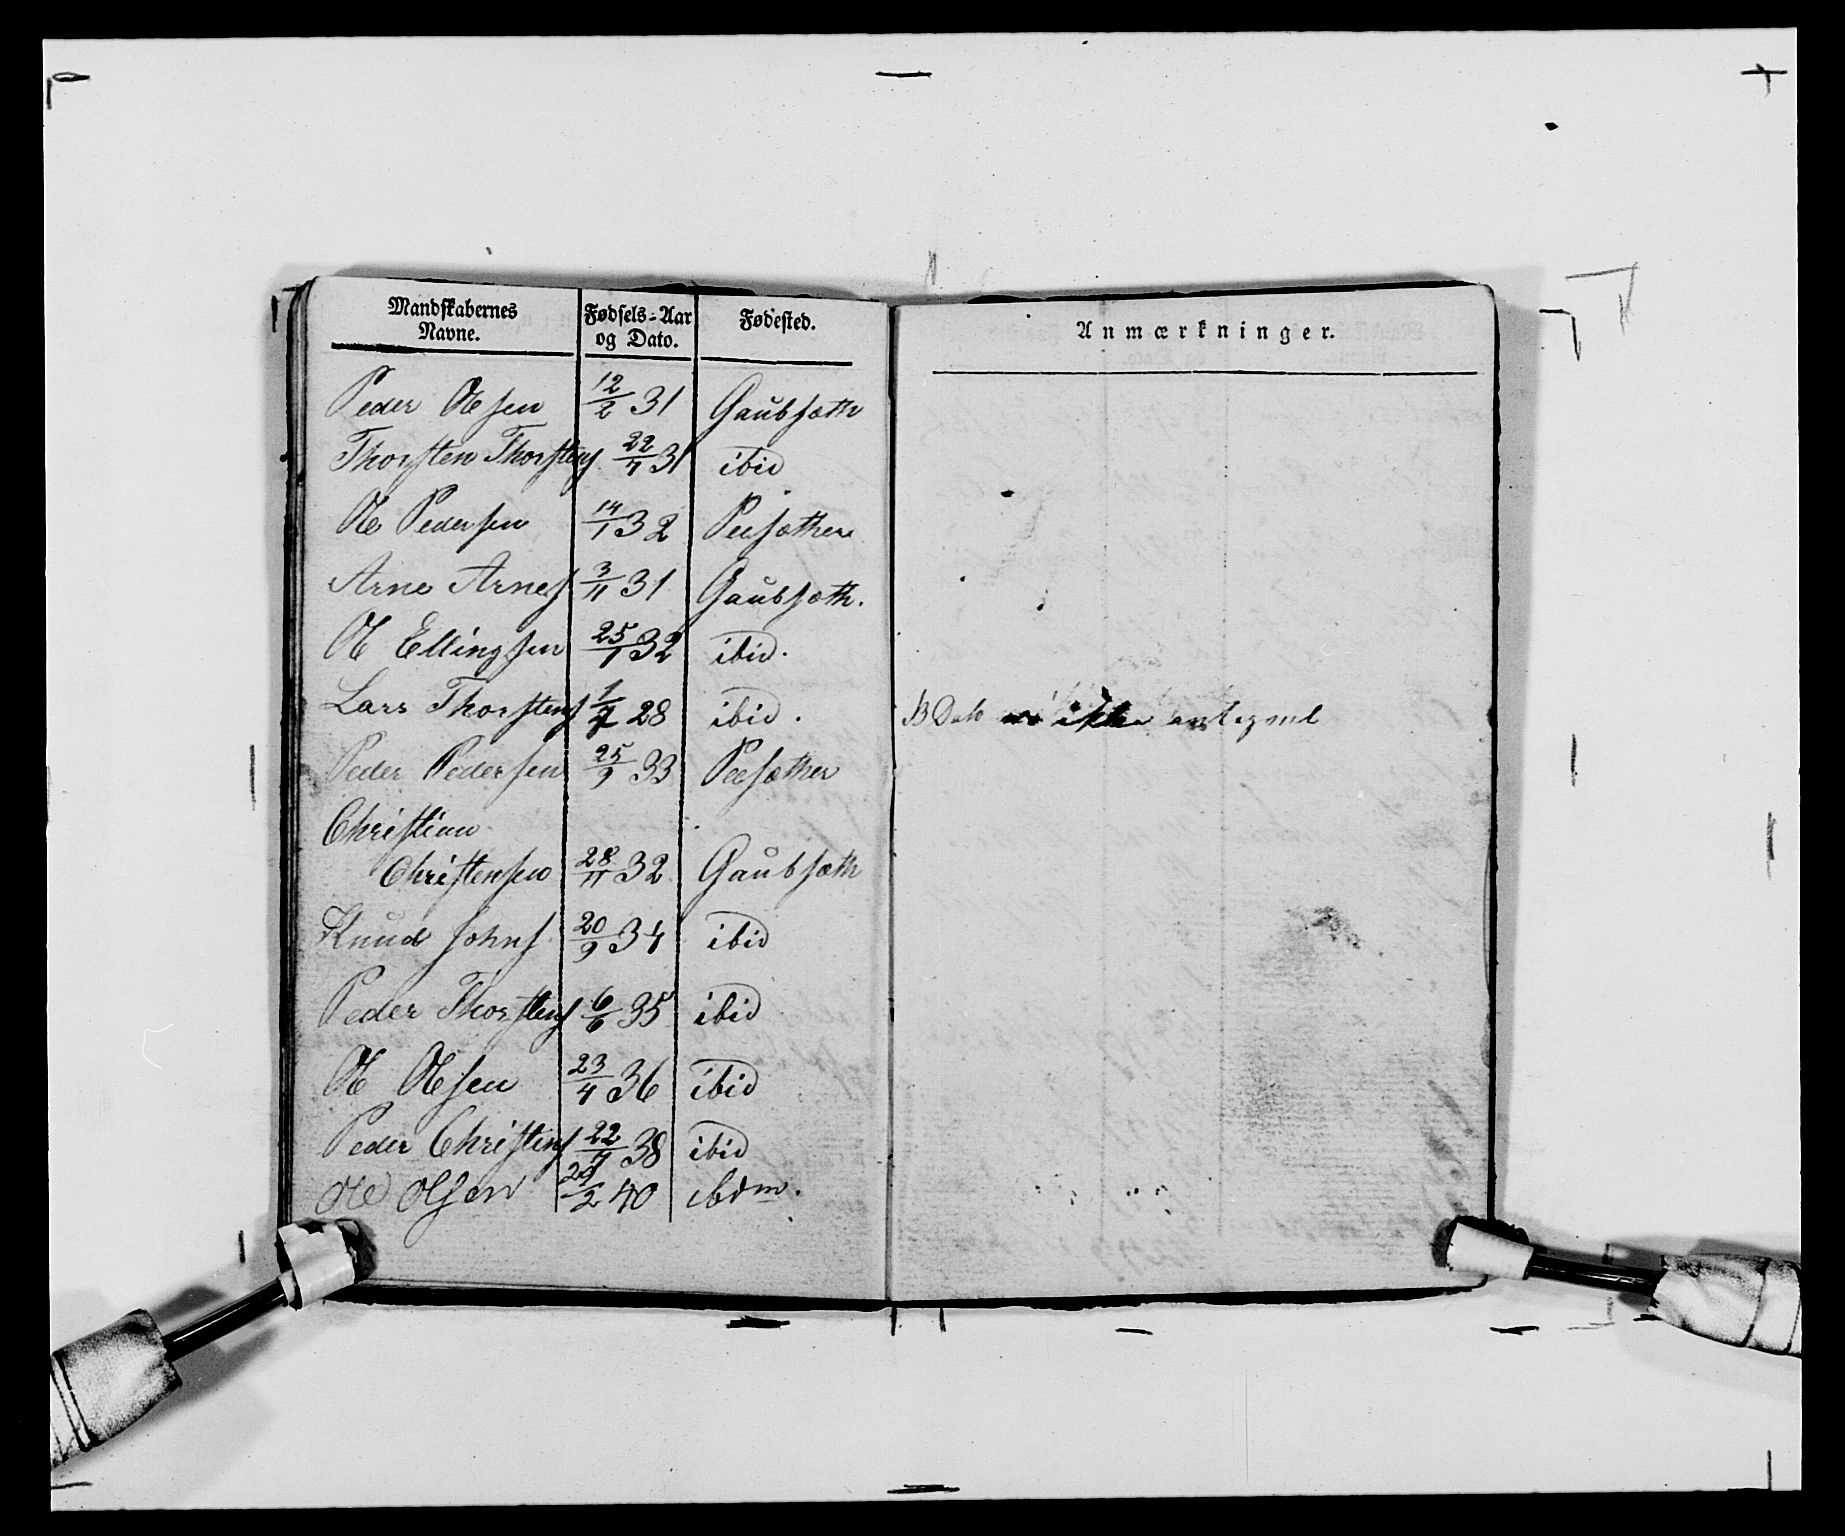 Mandskabernes Navne.	Fødsels-Aar og Dato.	Fødested.	Anmærkninger.
Peder Olsen	12/2 31	Gaubsæth
Thorsten Thorstens	22/7 31	ibid
Ole Pedersen	14/1 32	Peesæther
Arne Arnes	3/11 31	Gaubsæth.
Ole Ellingsen	25/1 32	ibid.
Lars Thorstens	28	ibid.	ikke
Peder Pedersen	25/9 33	Peesæther
Christian
Christensen	28/11 32	Gaubsæth
Knud Johns	20/9 34	ibid
Peder Thorstens	6/6 35	ibid
Ole Olsen	23/4 36	ibid
Peder Christens	22/7 38	ibid
Ole Olsen	29/2 40	ibdm.